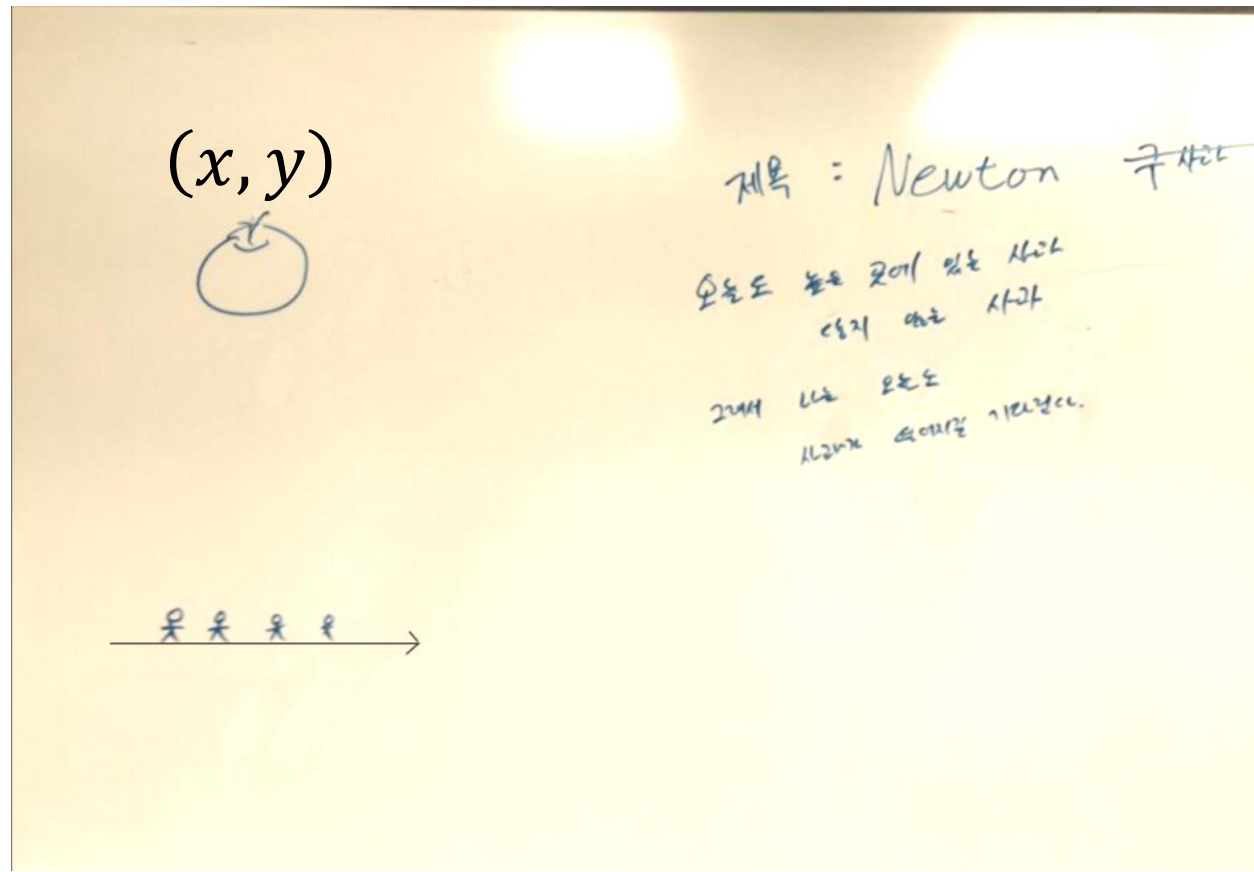 (x, y)
제목 : Newton 구사과
오늘도 높은 곳에 있는 사과
닿지 않는 사과
그래서 나는 오늘도
사과가 떨어지길 기다린다.